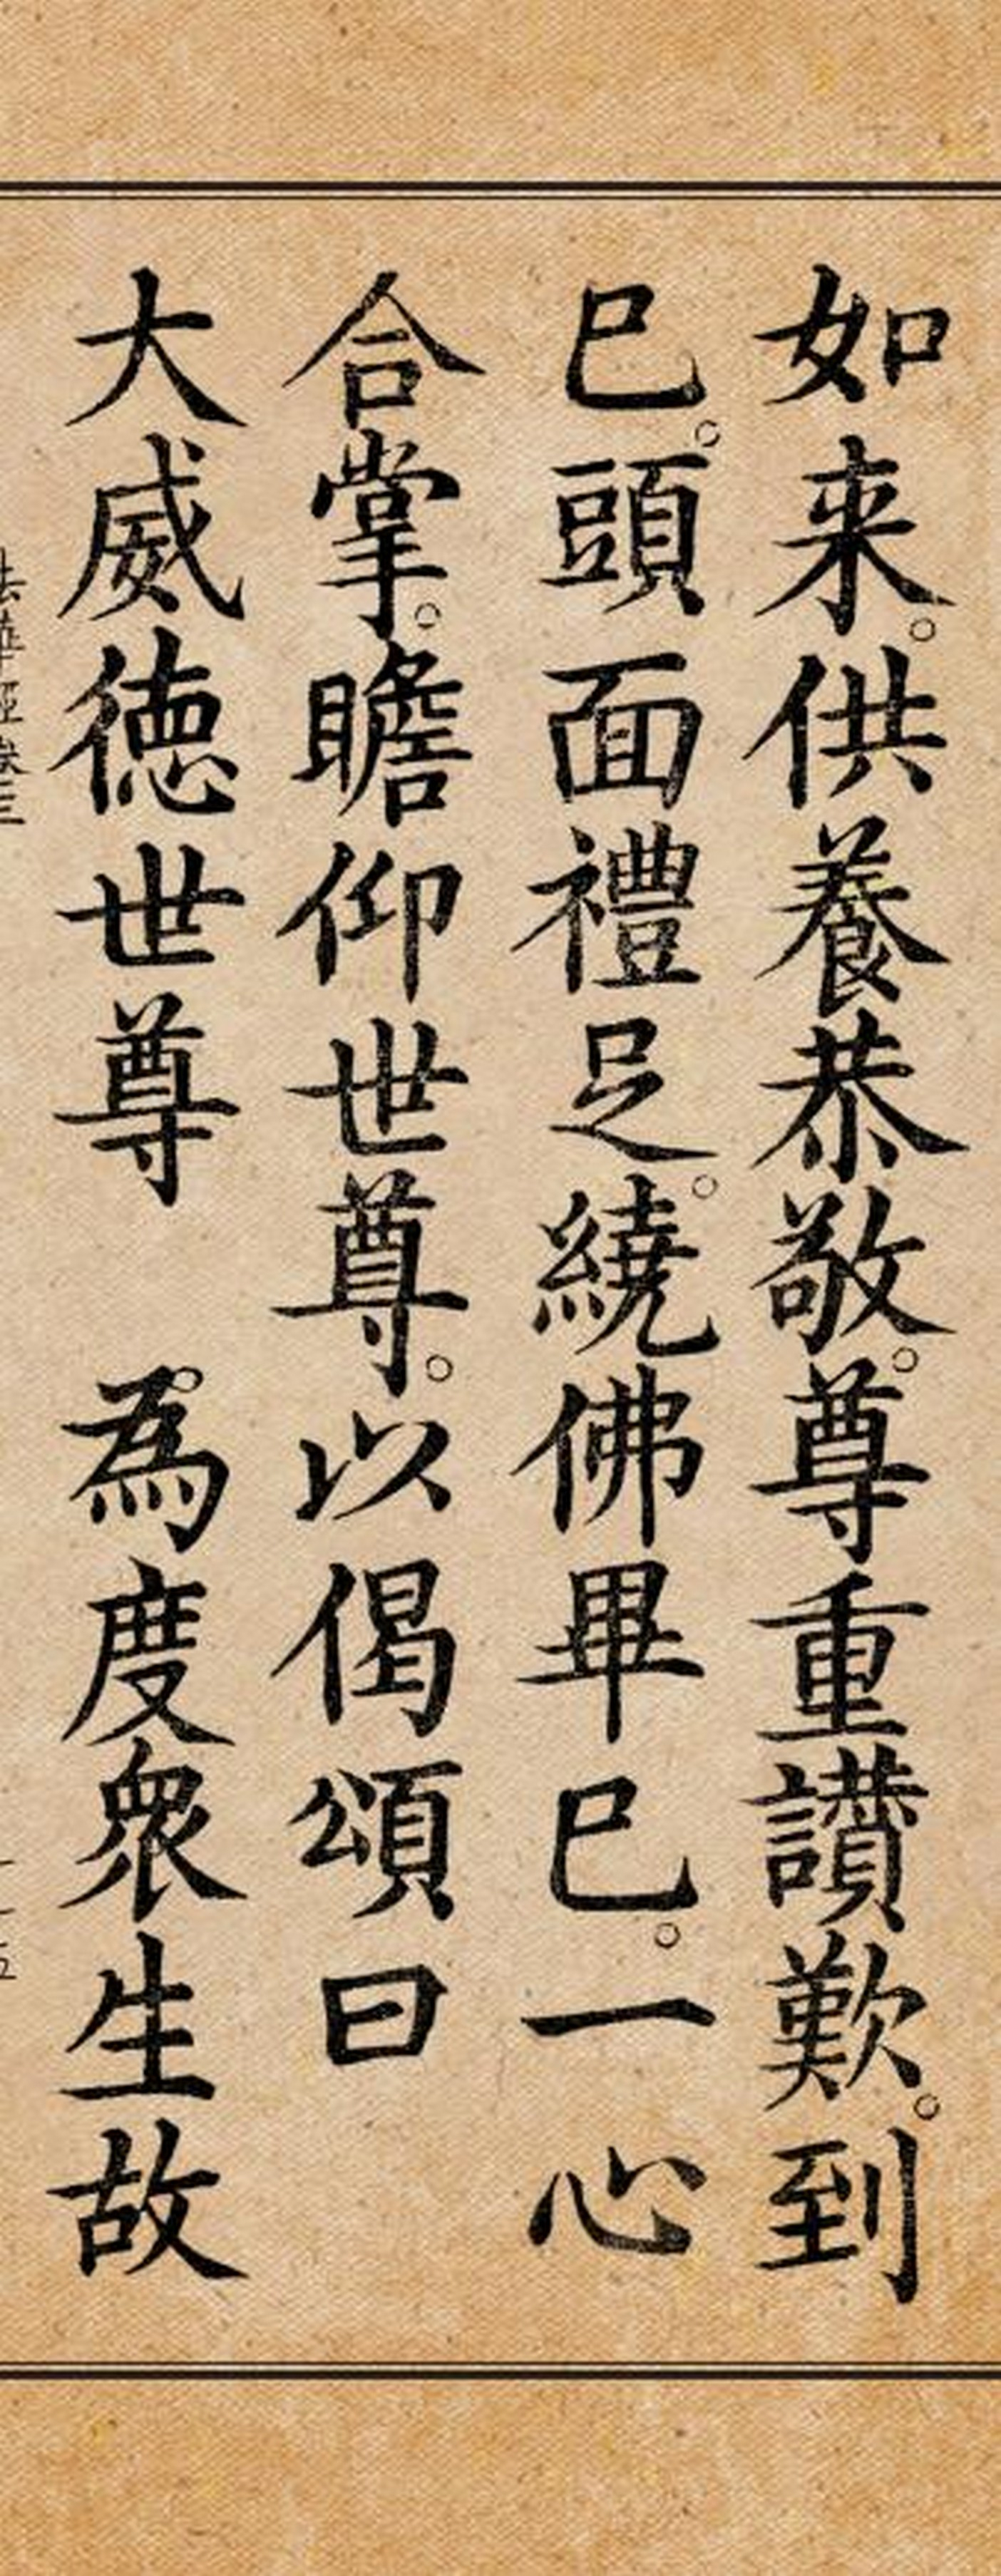 如来。供養恭敬。尊重讃歎。到
已。頭面禮足。繞佛畢已。一心
合掌。瞻仰世尊。以偈頌曰
大威徳世尊　為度衆生故
法華經卷三